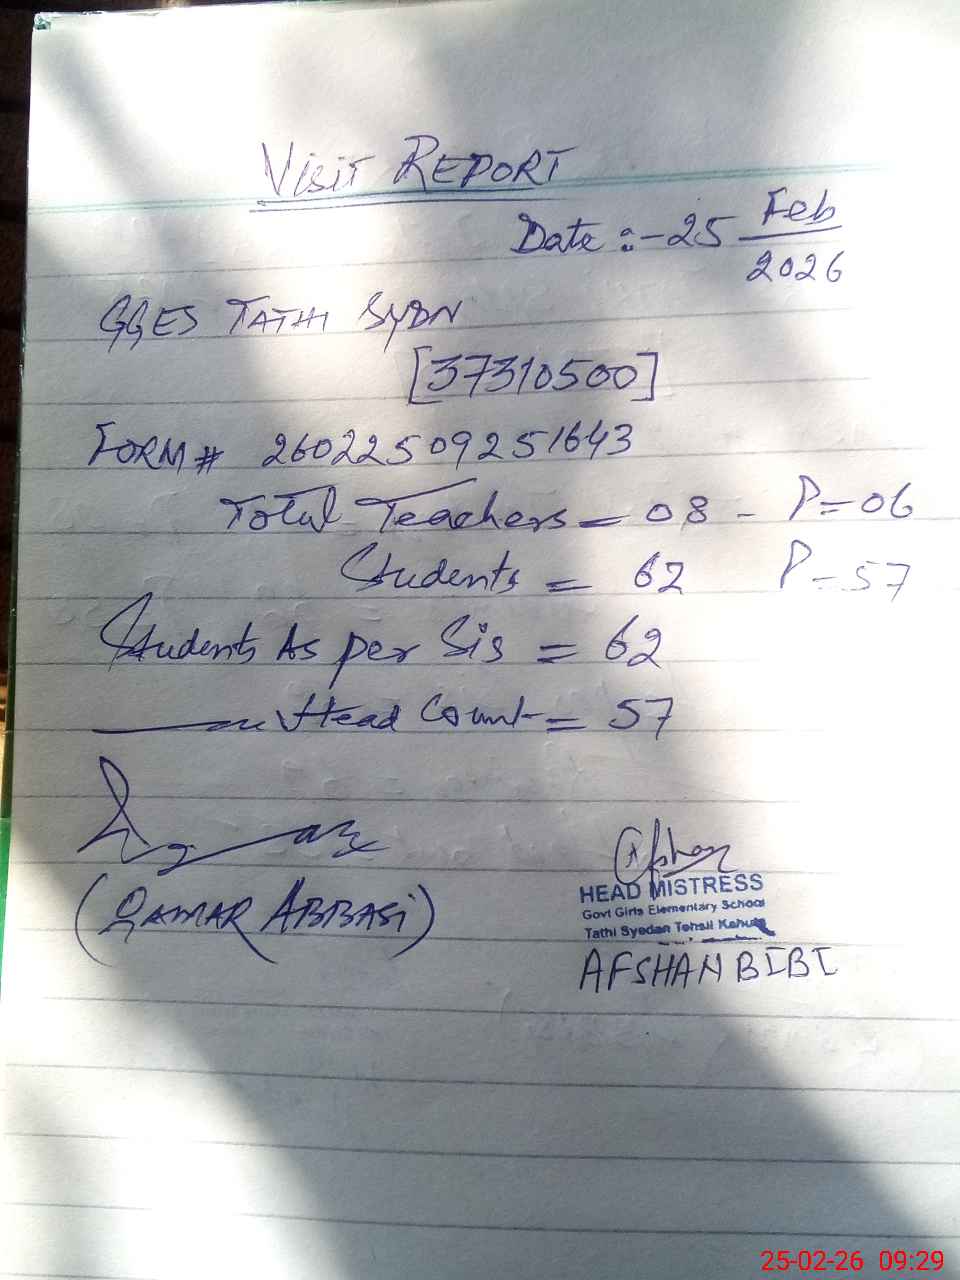 VISIT REPORT
Date :- 25 Feb
2026
GGES TATHI SYDN
[37310500]
FORM # 26022509251643
Total Teachers = 08 - P=06
Students = 62 P=57
Students As per Sis = 62
Head Count = 57
(QAMAR ABBASI)
Afshan
HEAD MISTRESS
Govt Girls Elementary School
Tathi Syedan Tehsil Kahuta
AFSHAN BIBI
25-02-26 09:29